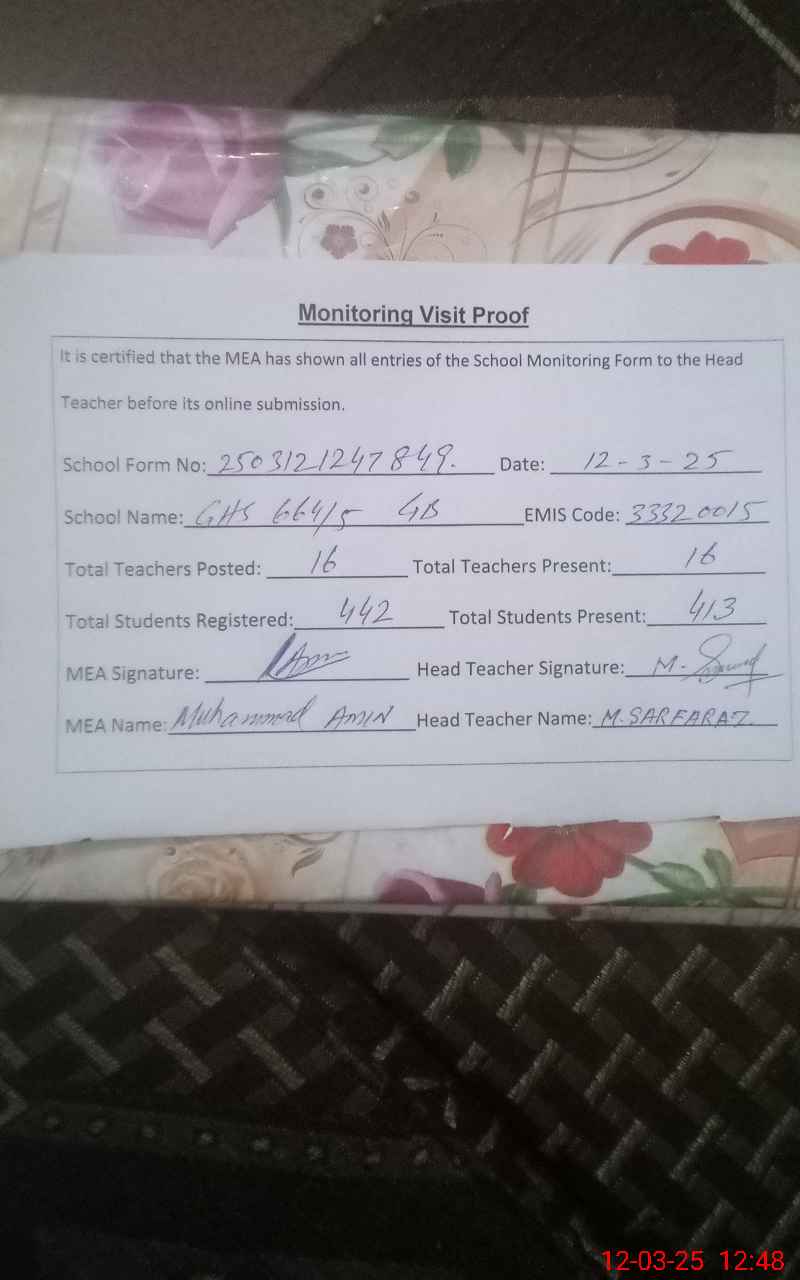 Monitoring Visit Proof
It is certified that the MEA has shown all entries of the School Monitoring Form to the Head
Teacher before its online submission.
School Form No: 2503121247849. Date: 12-3-25
School Name: GHS 664/5 GB EMIS Code: 33320015
Total Teachers Posted: 16 Total Teachers Present: 16
Total Students Registered: 442 Total Students Present: 413
MEA Signature: Head Teacher Signature: M.
MEA Name: Muhammad AMIN Head Teacher Name: M. SARFARAZ
12-03-25 12:48